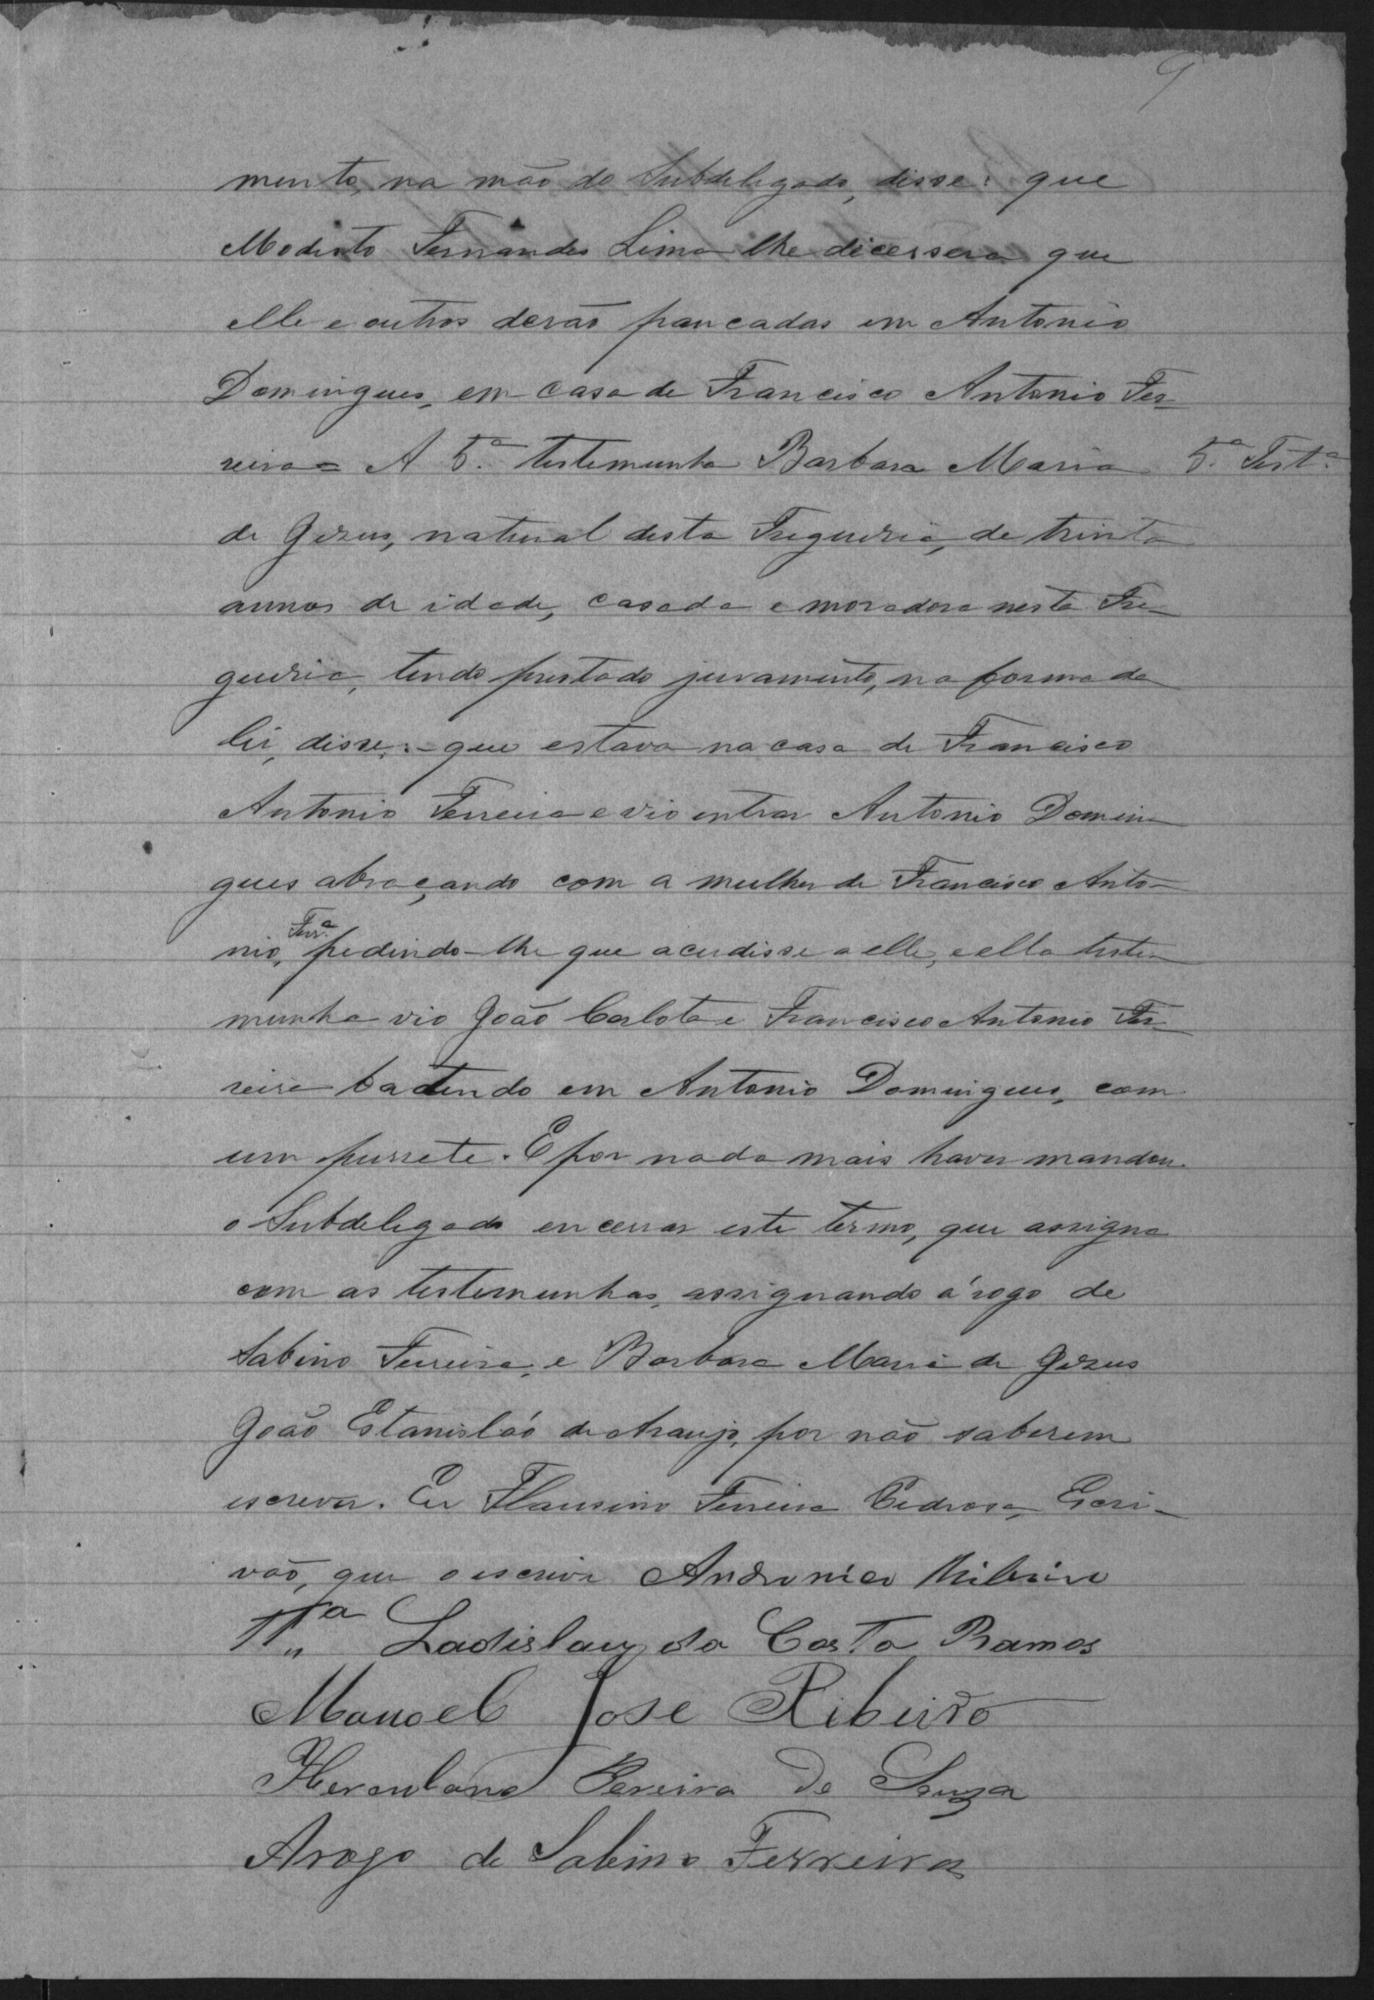 9
mento na mão do Subdelegado, disse: que
Modesto Fernandes Lima lhe dicessera que
elle e outros derão pancadas em Antonio
Domingues, em casa de Francisco Antonio Fer-
reira = A 5.ª testemunha Barbara Maria 5.ª Test.ª
de Gezus, natural desta Freguezia, de trinta
annos de idade, casada e moradora nesta Fre-
guezia, tendo prestado juramento, na forma da
lei, disse: - que estava na casa de Francisco
Antonio Ferreira e vio entrar Antonio Domin-
gues abraçando com a mulher de Francisco Anto-
nio, Ferr.ª pedindo-lhe que acudisse a elle, e ella teste-
munha vio João Carlota e Francisco Antonio Fer-
reira batendo em Antonio Domingues, com
um purrete. E por nada mais haver mandou
o Subdelegado encerrar este termo, que assigna
com as testemunhas, assignando á rogo de
Sabino Ferreira, e Barbara Maria de Gezus
João Estanisláo de Araujo, por não saberem
escrever. Eu Flausino Ferreira Pedrosa, Escri-
vão, que o escrevi Andronico Ribeiro
Ladislau da Costa Ramos
Manoel Jose Ribeiro
Herculano Pereira de Souza
Arogo de Sabino Ferreira